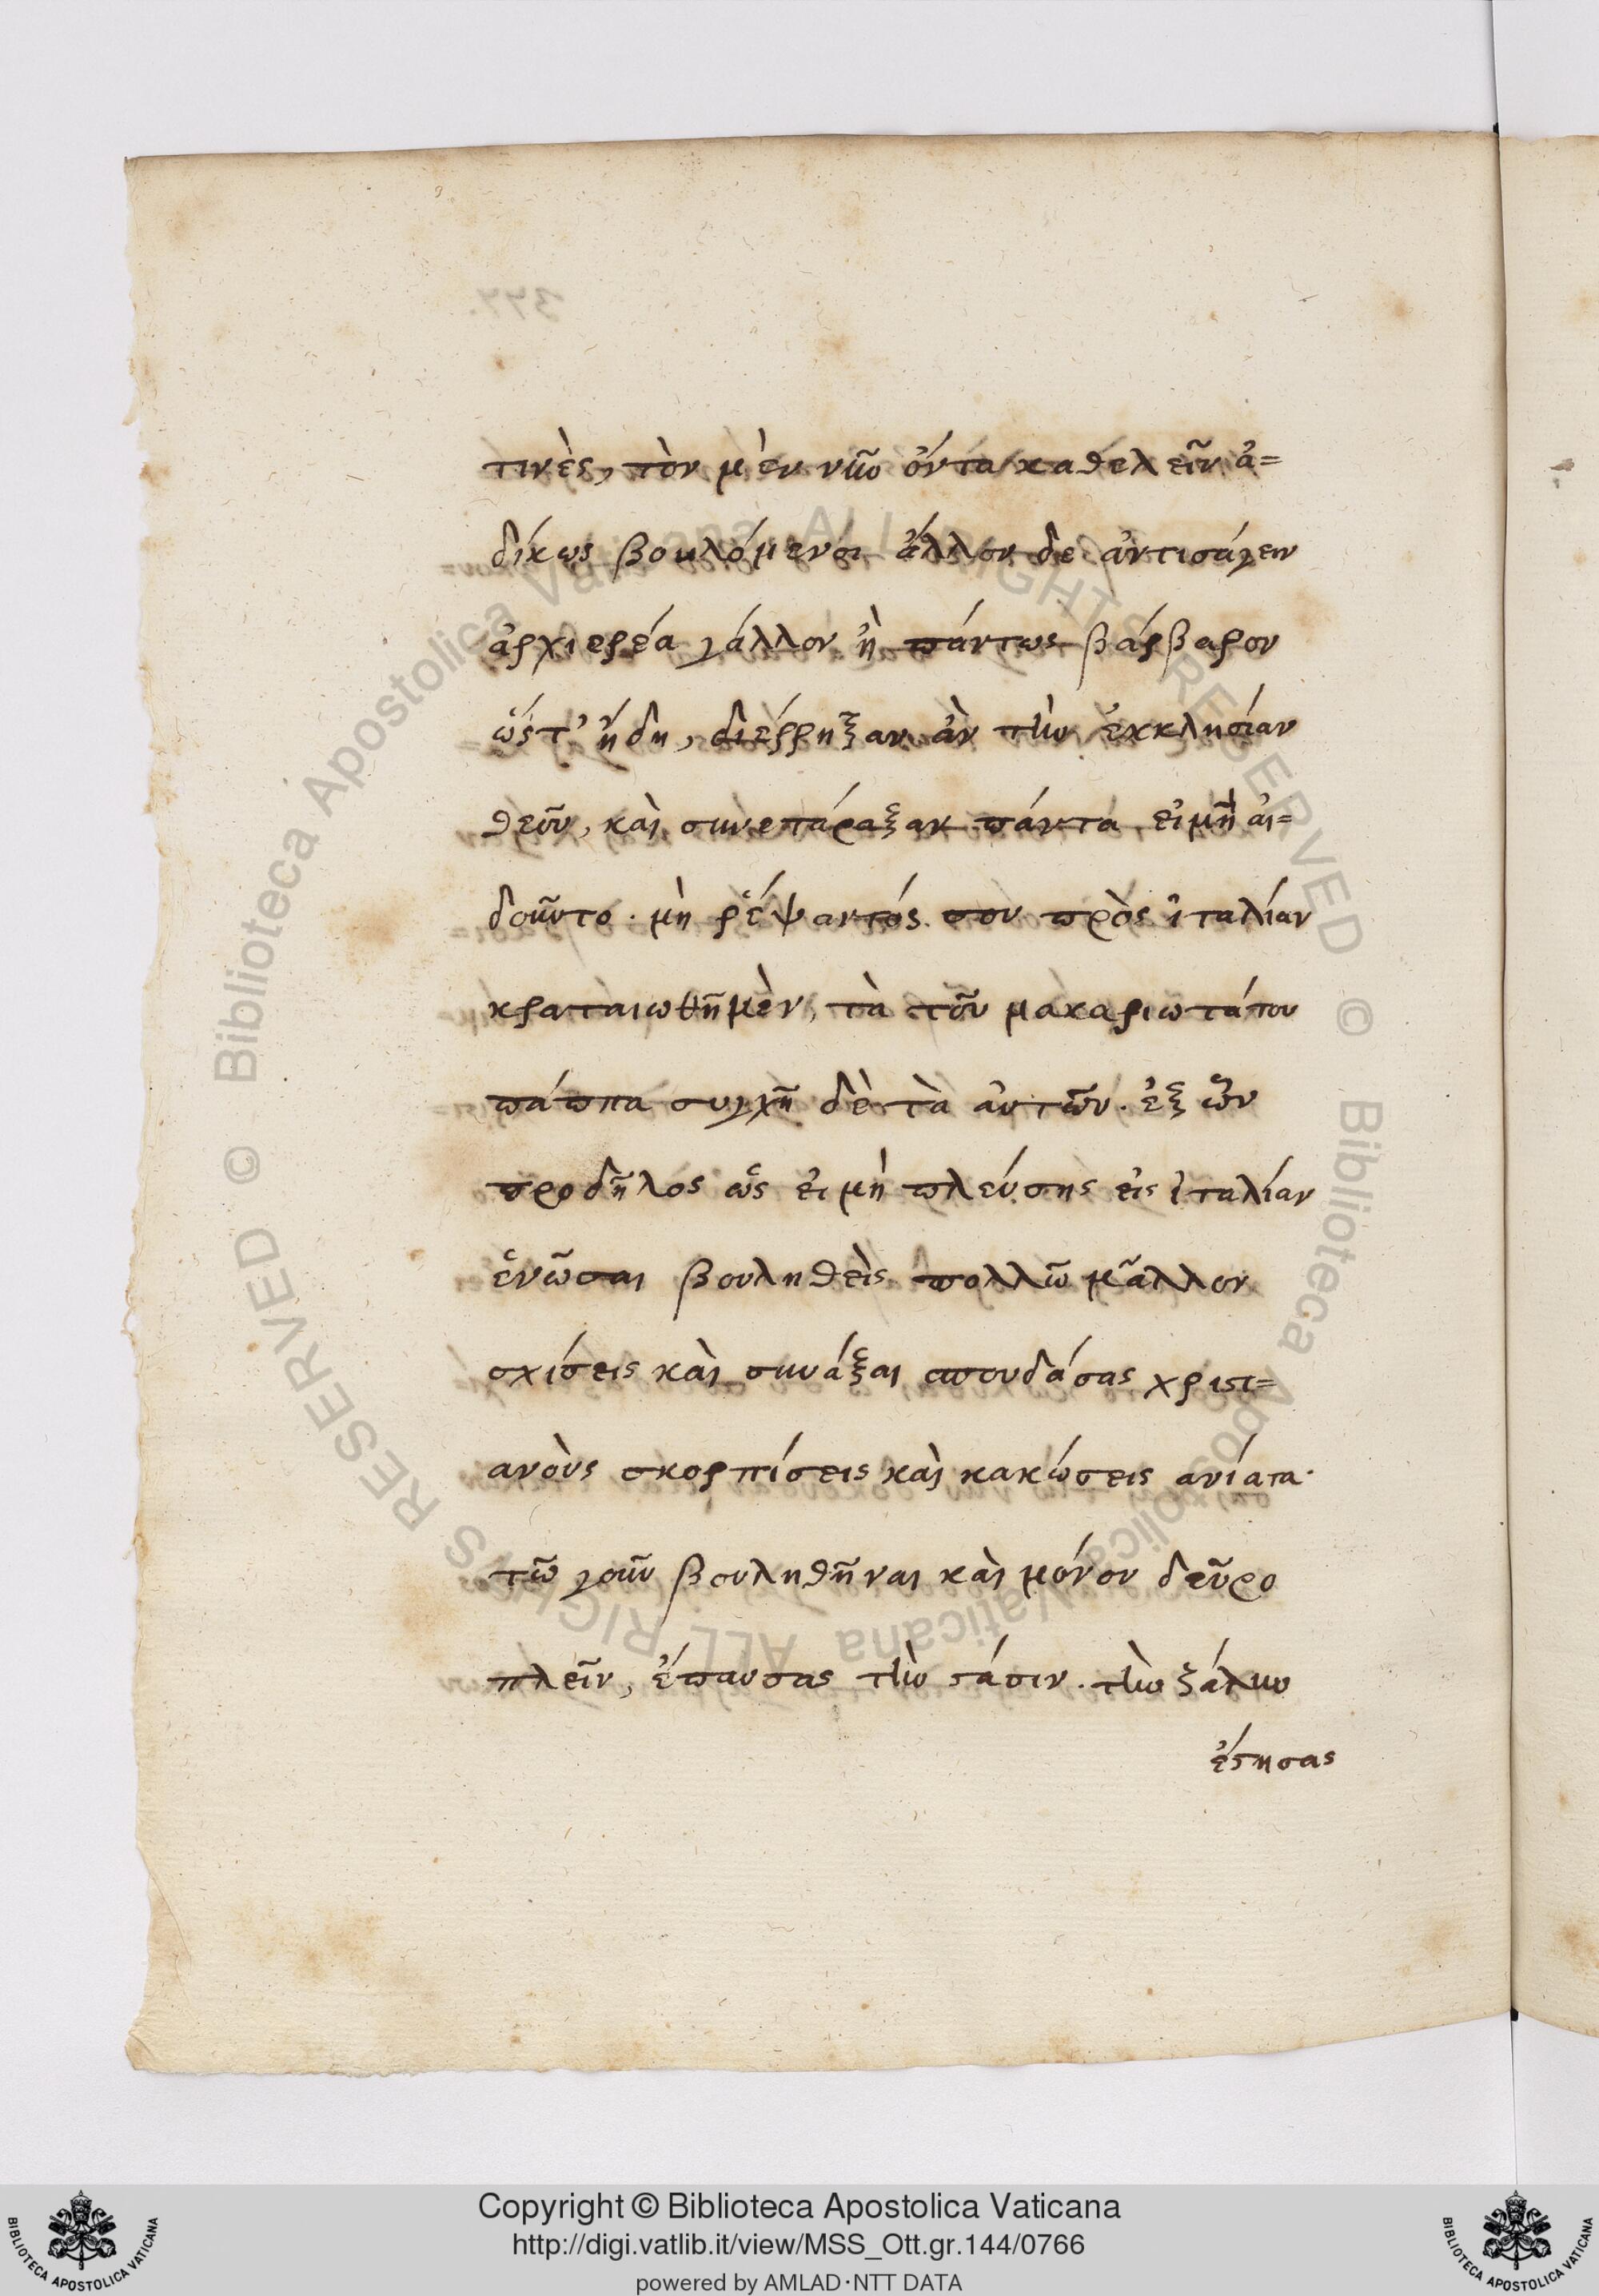 τινὲς, τὸν μὲν νῦν ὄντα καθελεῖν ἀ=
δίκως βουλόμενοι ἄλλον δὲ ἀντισάγειν
ἀρχιερέα γάλλον ἢ πάντως βάρβαρον
ὥστ' ἤδη, διέρρηξαν ἂν τὴν ἐκκλησίαν
θεοῦ, καὶ συνετάραξαν πάντα εἰμὴ αἰ=
δοῦντο. μὴ ῥέψαντός σου πρὸς ἰταλίαν
κραταιωθῆ μὲν, τὰ τοῦ μακαριωτάτου
πάππα συγχῆ δὲ τὰ αὐτῶν. ἐξ ὧν
προδῆλος ὡς εἰ μὴ πλεύσης εἰς ἰταλίαν
ἑνῶσαι βουληθεὶς πολλῶ μᾶλλον
σχίσεις καὶ συνάξαι σπουδάσας χριστι=
ανοὺς σκορπίσεις καὶ κακώσεις ανίατα·
τῶ γοῦν βουληθῆναι καὶ μόνον δεῦρο
πλεῖν, ἔπαυσας τὴν στάσιν. τὴν ζάλην
ἔστησας
377.
Copyright © Biblioteca Apostolica Vaticana
http://digi.vatlib.it/view/MSS_Ott.gr.144/0766
powered by AMLAD·NTT DATA
BIBLIOTECA APOSTOLICA VATICANA
BIBLIOTECA APOSTOLICA VATICANA
© Biblioteca Apostolica Vaticana ALL RIGHTS RESERVED © Biblioteca Apostolica Vaticana ALL RIGHTS RESERVED